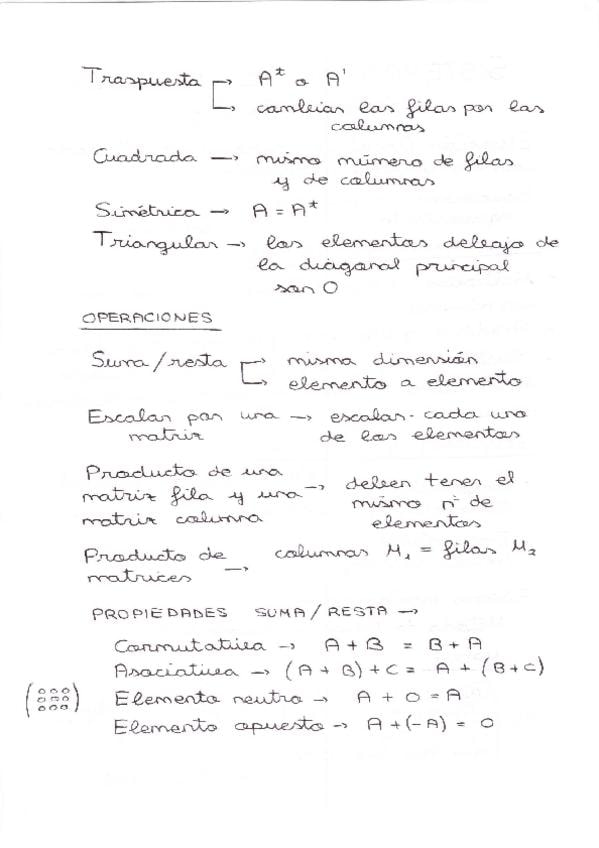 Traspuesta → Aᵗ o A'
→ cambias las filas por las
columnas
Cuadrada → mismo número de filas
y de columnas
Simétrica → A = Aᵗ
Triangular → los elementos debajo de
la diagonal principal
son 0
OPERACIONES
Suma/resta → misma dimensión
→ elemento a elemento
Escalar por una → escalar · cada uno
matriz de los elementos
Producto de una
matriz fila y una → deben tener el
matriz columna mismo nº de
elementos
Producto de → columnas M₁ = filas M₂
matrices
PROPIEDADES SUMA/RESTA →
Conmutativa → A + B = B + A
Asociativa → (A + B) + C = A + (B + C)
(000 000 000) Elemento neutro → A + 0 = A
Elemento opuesto → A + (-A) = 0